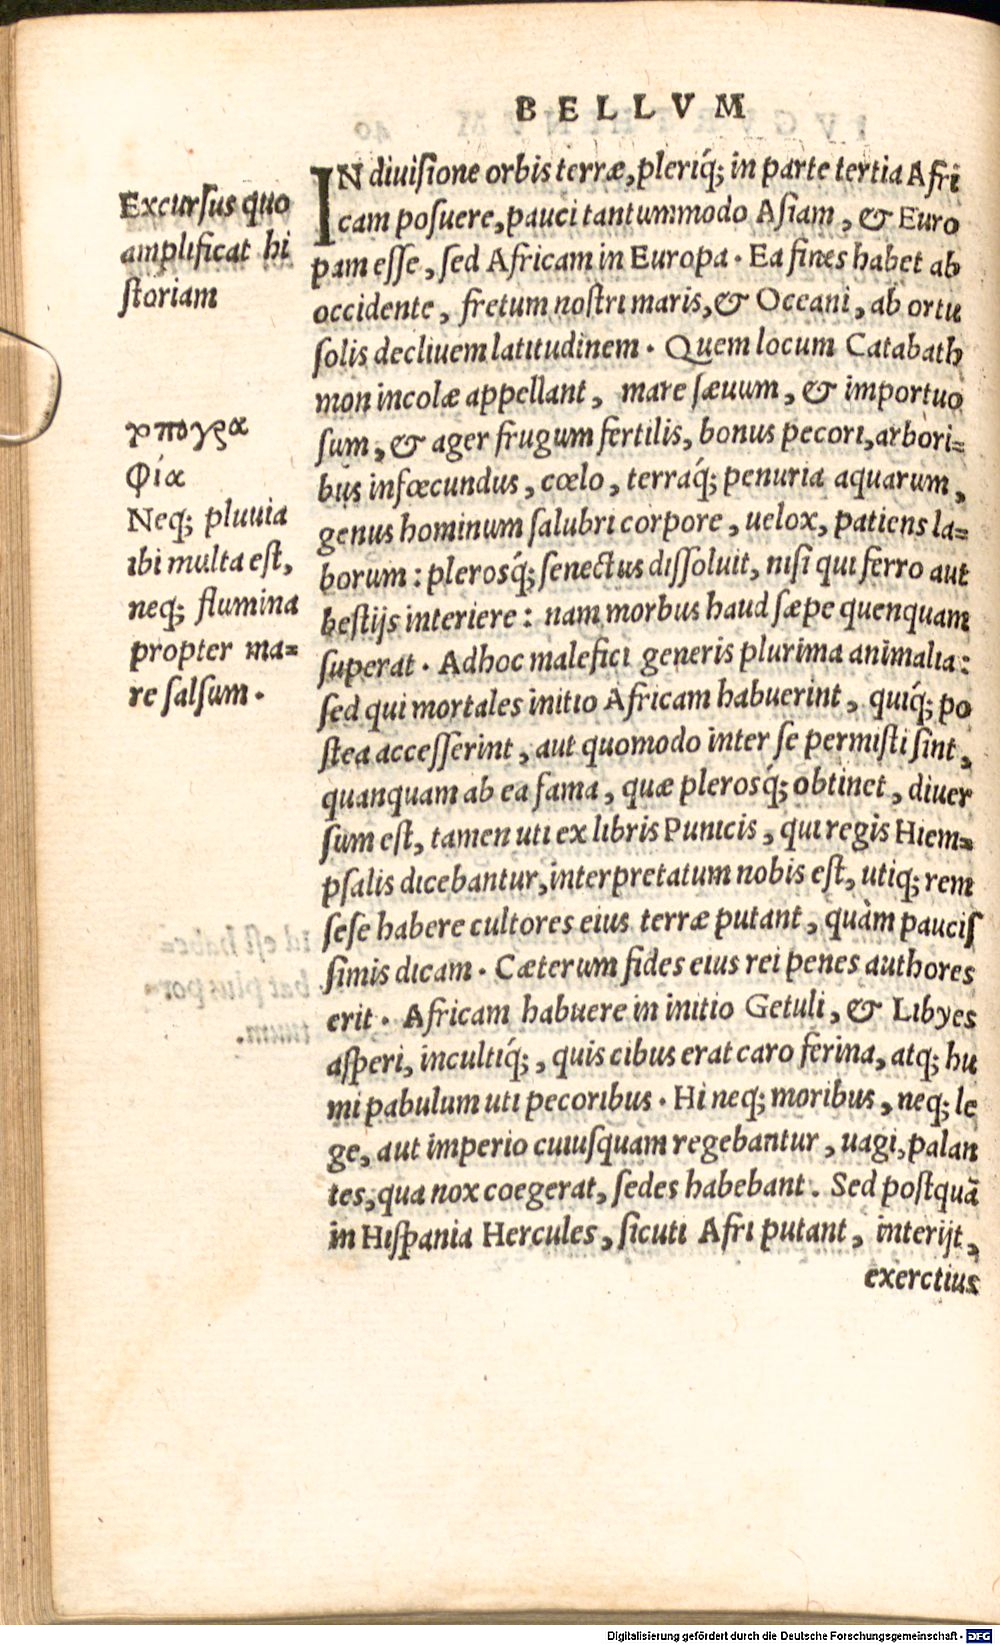 BELLVM
Excursus quo
amplificat hi
storiam
IN diuisione orbis terræ, pleriq́; in parte tertia Afri
cam posuere, pauci tantummodo Asiam, & Euro
pam esse, sed Africam in Europa. Ea fines habet ab
occidente, fretum nostri maris, & Oceani, ab ortu
solis decliuem latitudinem. Quem locum Catabath
mon incolæ appellant, mare sæuum, & importuo
sum, & ager frugum fertilis, bonus pecori, arbori=
bus infœcundus, cœlo, terraq́; penuria aquarum,
genus hominum salubri corpore, uelox, patiens la=
borum: plerosq́; senectus dissoluit, nisi qui ferro aut
bestijs interiere: nam morbus haud sæpe quenquam
superat. Adhoc malefici generis plurima animalia:
sed qui mortales initio Africam habuerint, quiq́; po
stea accesserint, aut quomodo inter se permisti sint,
quanquam ab ea fama, quæ plerosq́; obtinet, diuer
sum est, tamen uti ex libris Punicis, qui regis Hiem=
psalis dicebantur, interpretatum nobis est, utiq; rem
sese habere cultores eius terræ putant, quàm paucis
simis dicam. Cæterum fides eius rei penes authores
erit. Africam habuere in initio Getuli, & Libyes
asperi, incultiq́;, quis cibus erat caro ferina, atq; hu
mi pabulum uti pecoribus. Hi neq; moribus, neq; le
ge, aut imperio cuiusquam regebantur, uagi, palan
tes, qua nox coegerat, sedes habebant. Sed postquā
in Hispania Hercules, sicuti Afri putant, interijt,
exerctius
φία
Neq; pluuia
ibi multa est,
neq; flumina
propter ma=
re salsum.
Digitalisierung gefördert durch die Deutsche Forschungsgemeinschaft - DFG